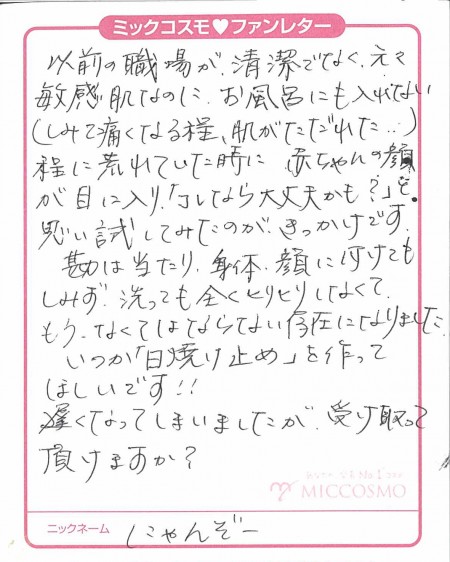 ミックコスモ♥ファンレター
以前の職場が、清潔でなく、元々
敏感肌なのに、お風呂にも入れない
(しみて痛くなる程、肌がただれた…)
程に荒れていた時に 赤ちゃんの顔
が目に入り、「コレなら大丈夫かも?」と
思い試してみたのが、きっかけです。
勘は当たり、身体、顔に付けても
しみず、洗っても全くヒリヒリしなくて、
もう、なくてはならない存在になりました。
いつか「日焼け止め」を作って
ほしいです!!
遅くなってしまいましたが、受け取って
頂けますか?
あなたの、なお No.1
MICCOSMO
ニックネーム にゃんぞー